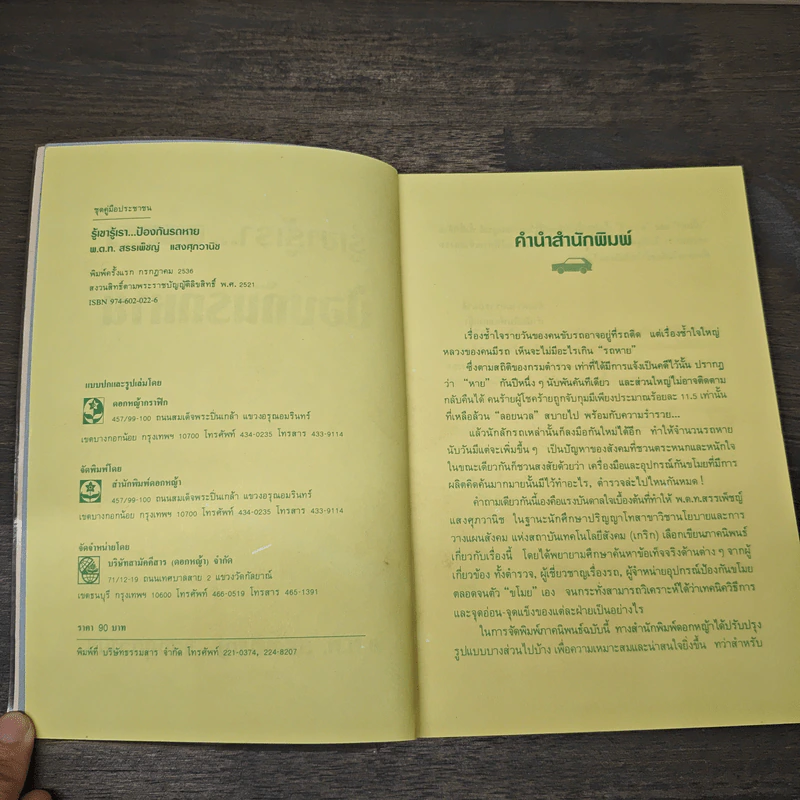 ชุดคู่มือประชาชน
รู้เขารู้เรา...ป้องกันรถหาย
พ.ต.ท. สรรเพ็ชญ์ แสงศุภวานิช
พิมพ์ครั้งแรก กรกฎาคม 2536
สงวนสิทธิ์ตามพระราชบัญญัติลิขสิทธิ์ พ.ศ. 2521
ISBN 974-602-022-6
แบบปกและรูปเล่มโดย
ดอกหญ้ากราฟิก
457/99-100 ถนนสมเด็จพระปิ่นเกล้า แขวงอรุณอมรินทร์
เขตบางกอกน้อย กรุงเทพฯ 10700 โทรศัพท์ 434-0235 โทรสาร 433-9114
จัดพิมพ์โดย
สำนักพิมพ์ดอกหญ้า
457/99-100 ถนนสมเด็จพระปิ่นเกล้า แขวงอรุณอมรินทร์
เขตบางกอกน้อย กรุงเทพฯ 10700 โทรศัพท์ 434-0235 โทรสาร 433-9114
จัดจำหน่ายโดย
บริษัทสามัคคีสาร (ดอกหญ้า) จำกัด
71/12-19 ถนนเทศบาลสาย 2 แขวงวัดกัลยาณ์
เขตธนบุรี กรุงเทพฯ 10600 โทรศัพท์ 466-0519 โทรสาร 465-1391
ราคา 90 บาท
พิมพ์ที่ บริษัทธรรมสาร จำกัด โทรศัพท์ 221-0374, 224-8207
คำนำสำนักพิมพ์
เรื่องช้ำใจรายวันของคนขับรถอาจอยู่ที่รถติด แต่เรื่องช้ำใจใหญ่
หลวงของคนมีรถ เห็นจะไม่มีอะไรเกิน “รถหาย”
ซึ่งตามสถิติของกรมตำรวจ เท่าที่ได้มีการแจ้งเป็นคดีไว้นั้น ปรากฏ
ว่า “หาย” กันปีหนึ่ง ๆ นับพันคันทีเดียว และส่วนใหญ่ไม่อาจติดตาม
กลับคืนได้ คนร้ายผู้โชคร้ายถูกจับกุมมีเพียงประมาณร้อยละ 11.5 เท่านั้น
ที่เหลือล้วน “ลอยนวล” สบายไป พร้อมกับความร่ำรวย...
แล้วนักลักรถเหล่านั้นก็ลงมือกันใหม่ได้อีก ทำให้จำนวนรถหาย
นับวันมีแต่จะเพิ่มขึ้น ๆ เป็นปัญหาของสังคมที่ชวนตระหนกและหนักใจ
ในขณะเดียวกันก็ชวนสงสัยด้วยว่า เครื่องมือและอุปกรณ์กันขโมยที่มีการ
ผลิตคิดค้นมากมายนั้นมีไว้ทำอะไร, ตำรวจล่ะไปไหนกันหมด !
คำถามเดียวกันนี้เองคือแรงบันดาลใจเบื้องต้นที่ทำให้ พ.ต.ท.สรรเพ็ชญ์
แสงศุภวานิช ในฐานะนักศึกษาปริญญาโทสาขาวิชานโยบายและการ
วางแผนสังคม แห่งสถาบันเทคโนโลยีสังคม (เกริก) เลือกเขียนภาคนิพนธ์
เกี่ยวกับเรื่องนี้ โดยได้พยายามศึกษาค้นหาข้อเท็จจริงด้านต่าง ๆ จากผู้
เกี่ยวข้อง ทั้งตำรวจ, ผู้เชี่ยวชาญเรื่องรถ, ผู้จำหน่ายอุปกรณ์ป้องกันขโมย
ตลอดจนตัว “ขโมย” เอง จนกระทั่งสามารถวิเคราะห์ได้ว่าเทคนิควิธีการ
และจุดอ่อน-จุดแข็งของแต่ละฝ่ายเป็นอย่างไร
ในการจัดพิมพ์ภาคนิพนธ์ฉบับนี้ ทางสำนักพิมพ์ดอกหญ้าได้ปรับปรุง
รูปแบบบางส่วนไปบ้าง เพื่อความเหมาะสมและน่าสนใจยิ่งขึ้น ทว่าสำหรับ